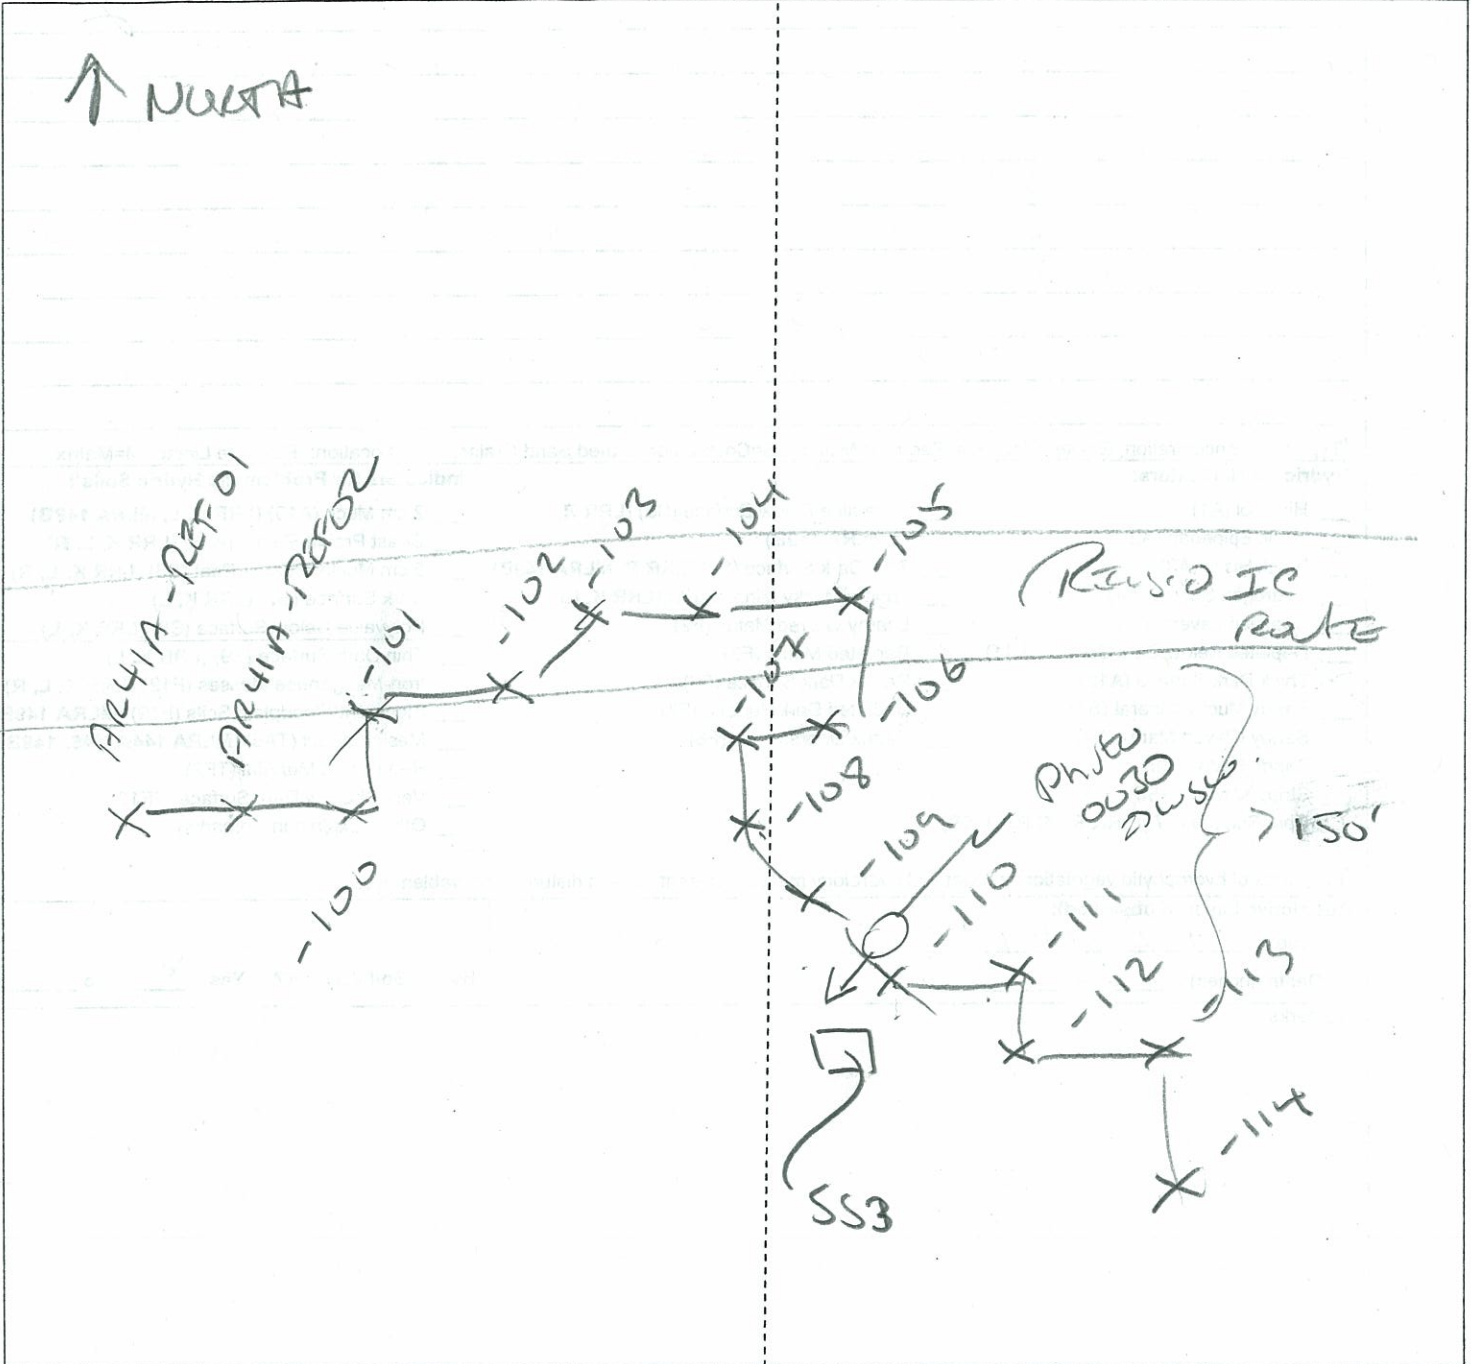 ↑ NORTH
AR41A-REF01
AR41A-REF02
-100
-101
-102
-103
-104
-105
-106
-107
-108
-109
-110
-111
-112
-113
-114
IC
ROUTE
Photo
0030
> 150'
SS3